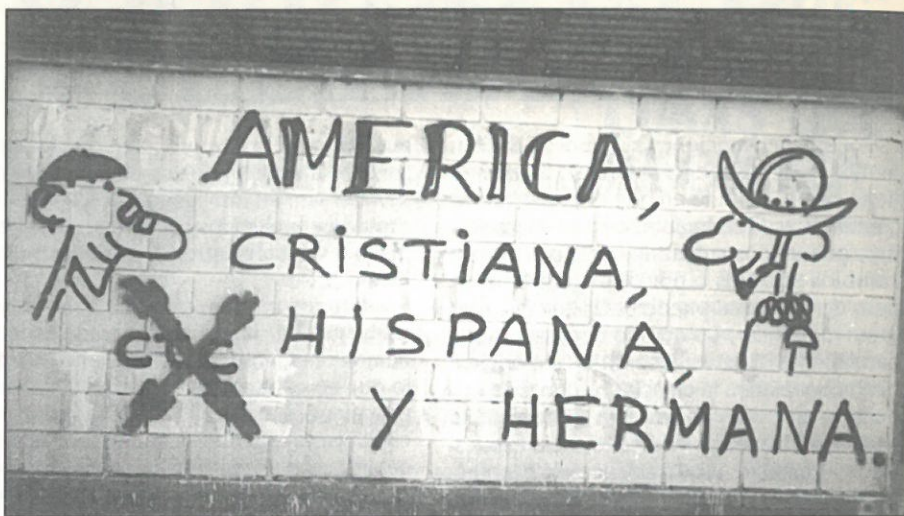 AMERICA,
CRiSTiANA,
HISPANA,
Y HERMANA.
CTC